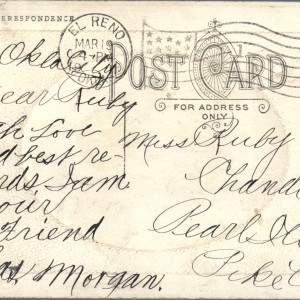 RRESPONDENCE
EL RENO
MAR 1
OKLA.
POST CARD
FOR ADDRESS
ONLY
Okla City
Dear Ruby
With Love
and best re-
gards, I am
Your
Friend
Morgan.
Miss Ruby
Chand
Pearl
Pike